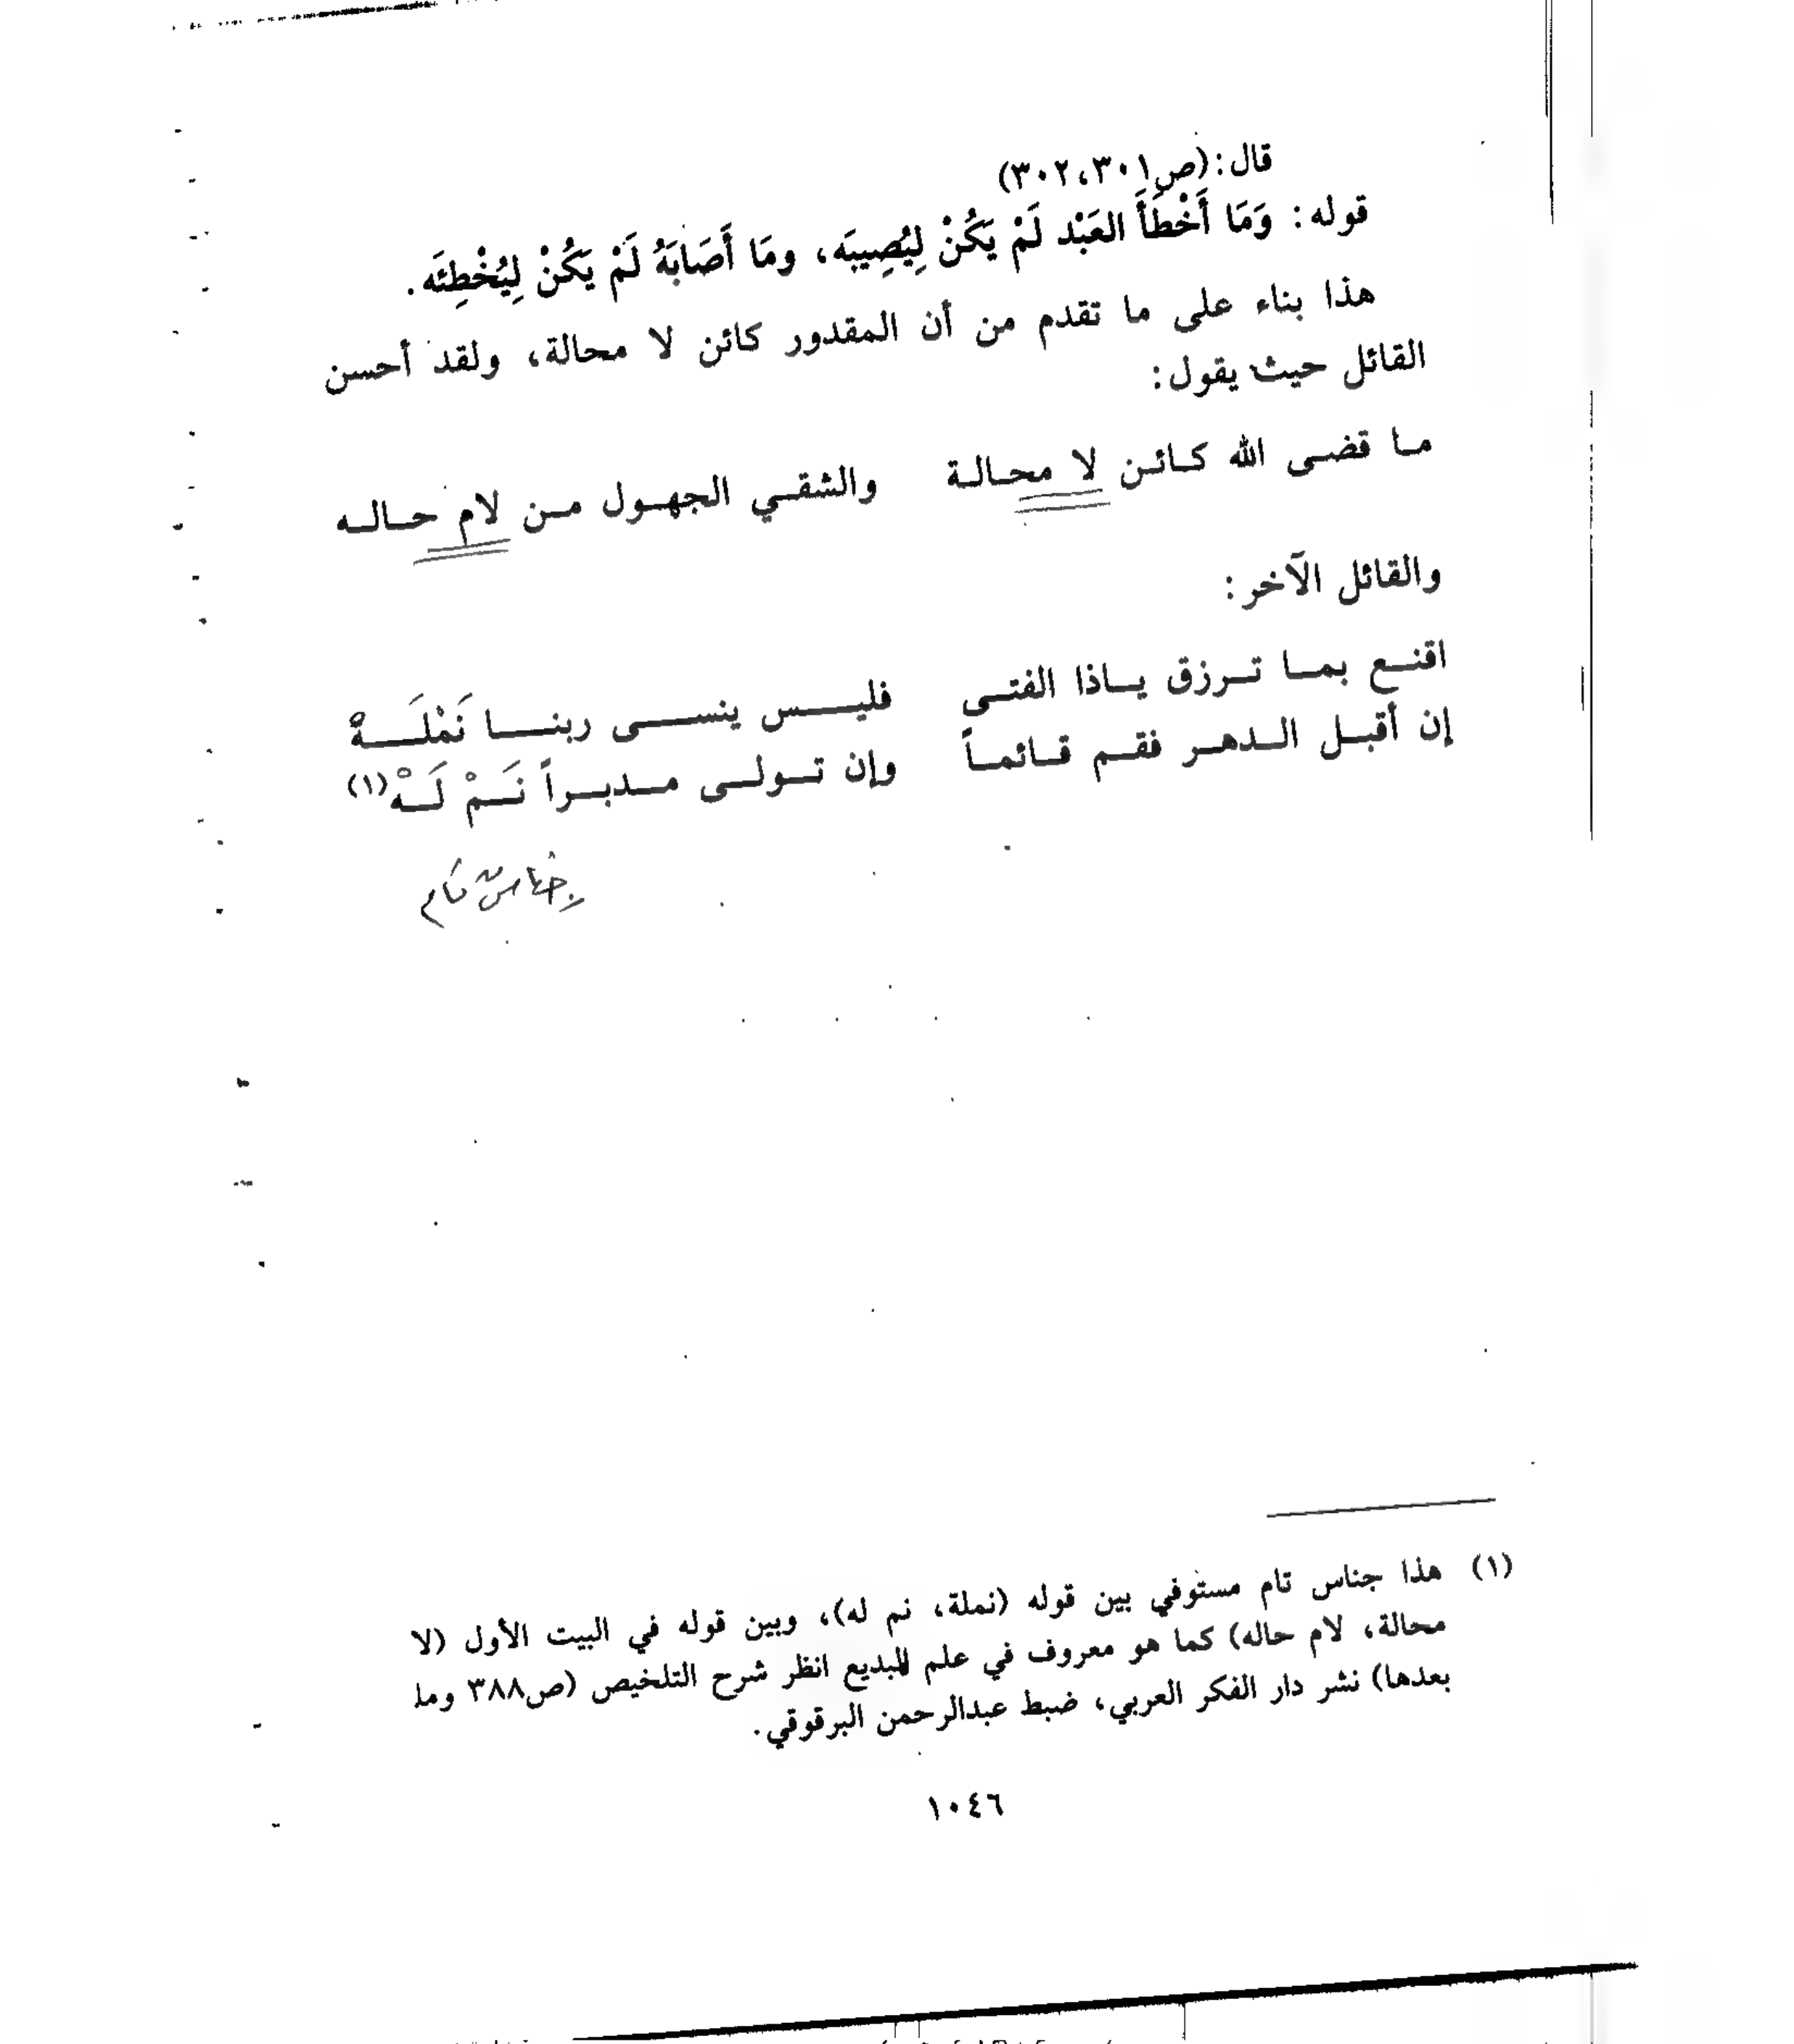 قال: (ص٣٠١، ٣٠٢)
قوله: وَمَا أَخْطَأَ العَبْد لَمْ يَكُنْ لِيُصِيبَه، ومَا أَصَابَهُ لَمْ يَكُنْ لِيُخْطِئَه.
هذا بناء على ما تقدم من أن المقدور كائن لا محالة، ولقد أحسن
القائل حيث يقول:
ما قضى الله كائن لا محالة والشقي الجهول من لام حاله
والقائل الآخر:
اقنع بما ترزق ياذا الفتى فليس ينسى ربنا نَمْلَهْ
إن أقبل الدهر فقم قائماً وإن تولى مدبراً نَمْ لَهْ(١)
جناس تام
(١) هذا جناس تام مستوفي بين قوله (نملة، نم له)، وبين قوله في البيت الأول (لا
محالة، لام حاله) كما هو معروف في علم البديع انظر شرح التلخيص (ص٣٨٨ وما
بعدها) نشر دار الفكر العربي، ضبط عبدالرحمن البرقوقي.
١٠٤٦